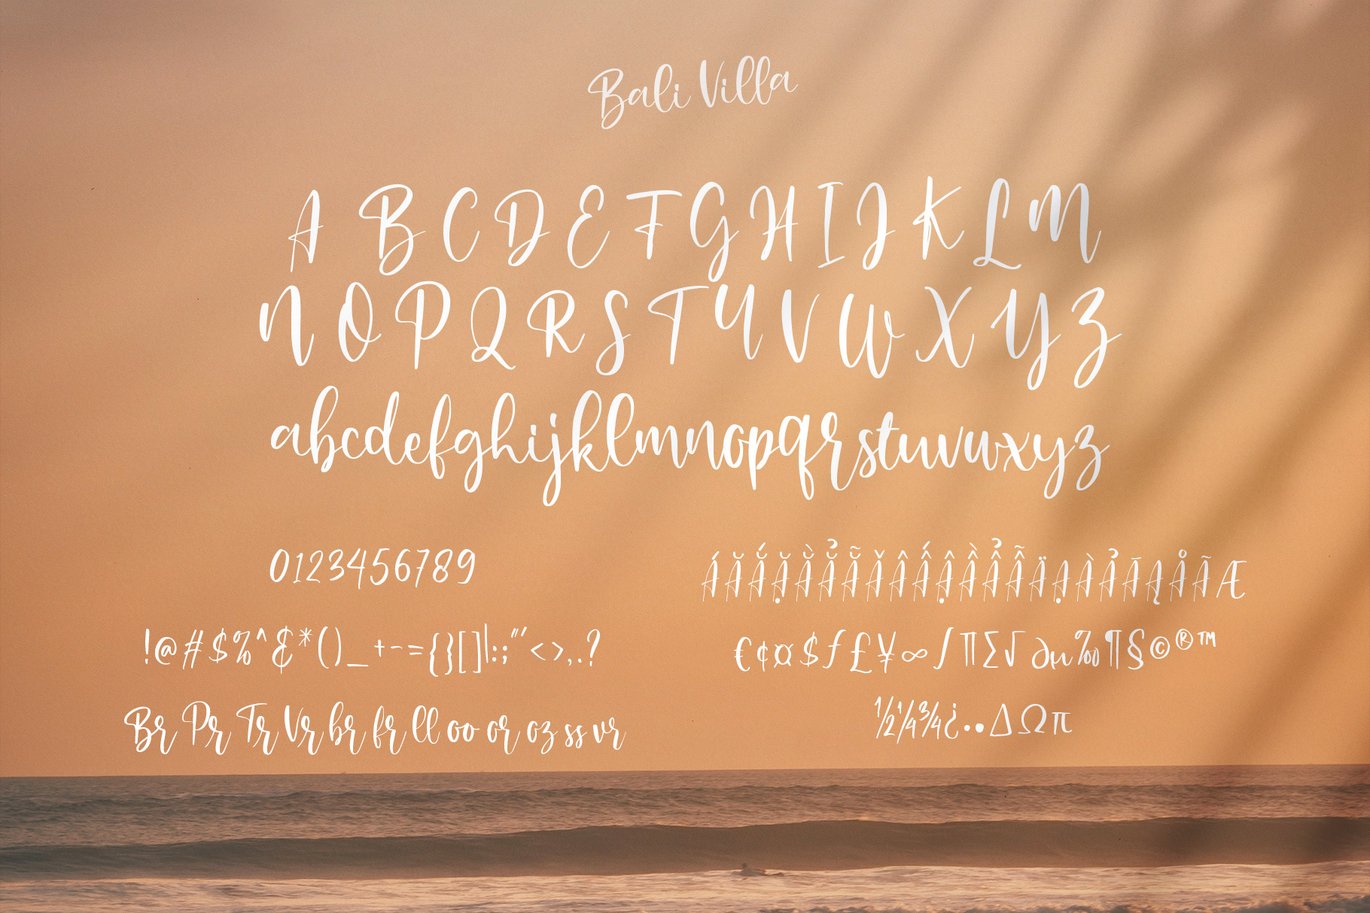 Bali Villa
A B C D E F G H I J K L M
N O P Q R S T U V W X Y Z
abcdefghijklmnopqrstuvwxyz
0123456789
!@#$%^&*()_+-={}[]|:;"'<>,.?
Br Pr Tr Vr br fr ll oo or oz ss vr
€¢¤$ƒ£¥∞∫∏∑√∂µ‰¶§©®™
½¼¾¿•·∆Ωπ